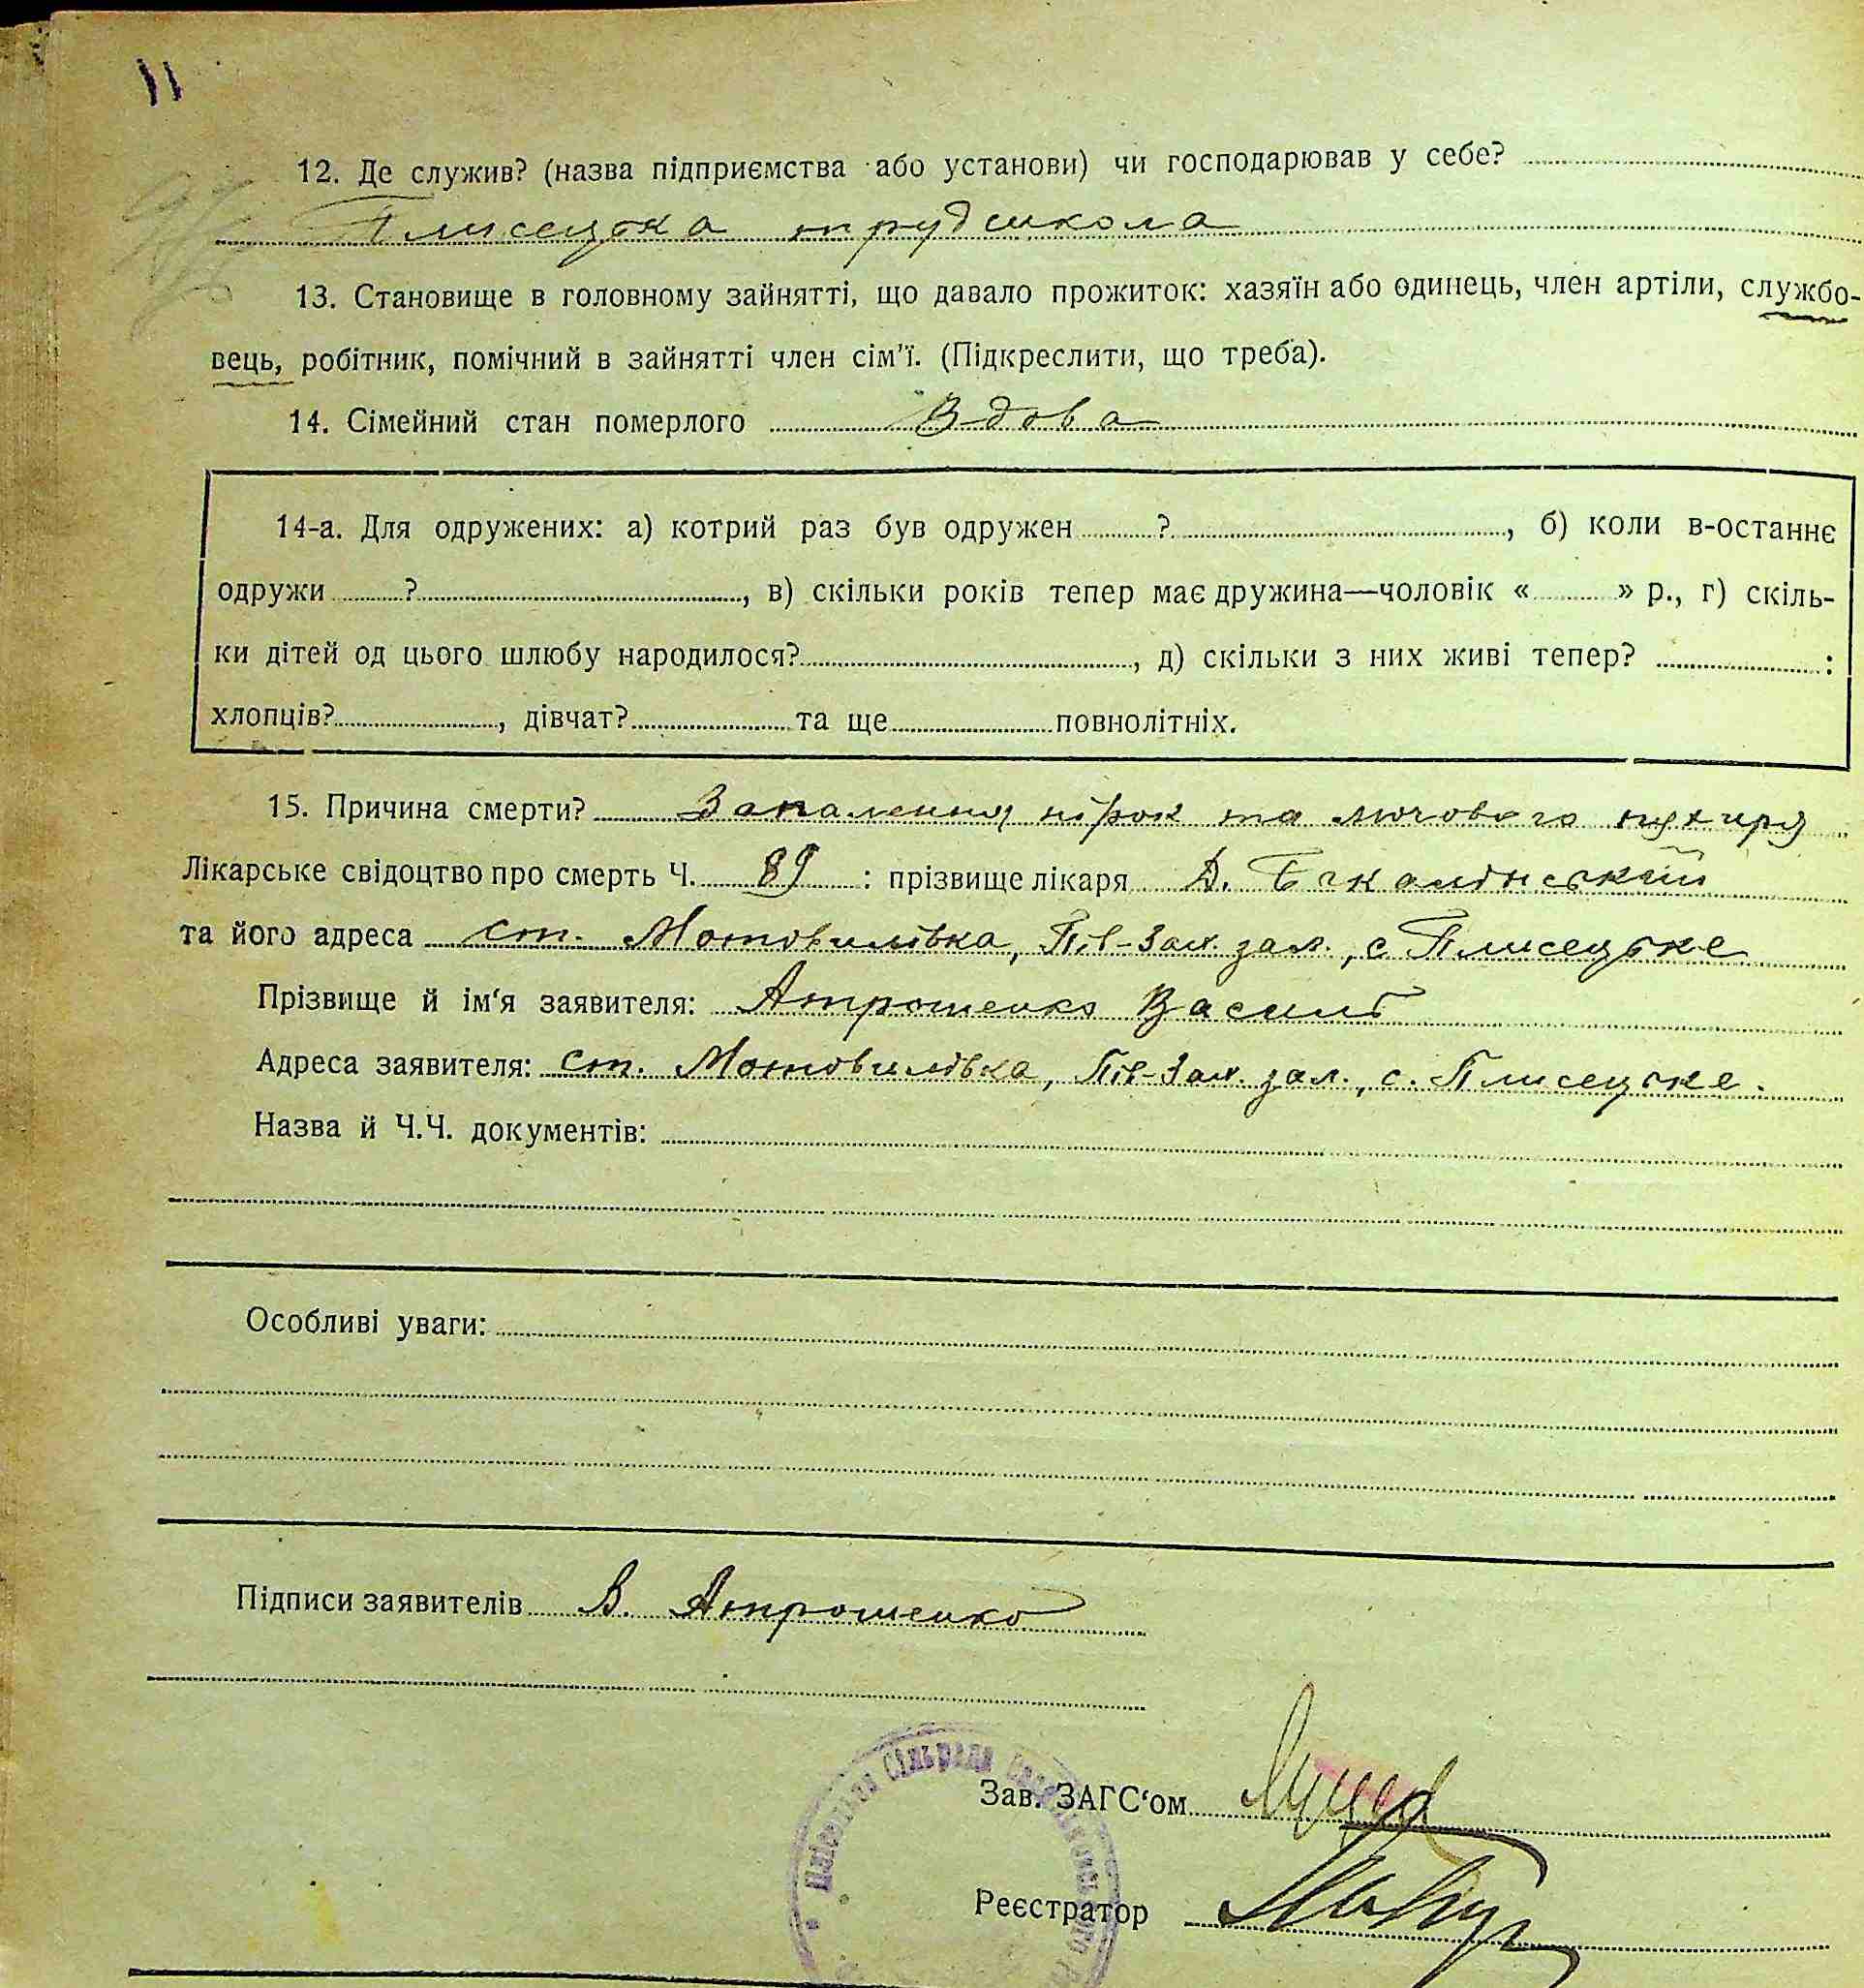 11
12. Де служив? (назва підприємства або установи) чи господарював у себе?
Плисецька трудшкола
13. Становище в головному зайнятті, що давало прожиток: хазяїн або одинець, член артіли, службо-
вець, робітник, помічний в зайнятті член сім'ї. (Підкреслити, що треба).
14. Сімейний стан померлого Вдова
14-а. Для одружених: а) котрий раз був одружен ?, б) коли в-останнє
одружи ?, в) скільки років тепер має дружина—чоловік « » р., г) скіль-
ки дітей од цього шлюбу народилося?, д) скільки з них живі тепер? :
хлопців?, дівчат? та ще повнолітніх.
15. Причина смерти? Запалення нірок та мочового пухиря
Лікарське свідоцтво про смерть Ч. 89 : прізвище лікаря Д.
та його адреса ст. Мотовилівка, Пів-Зах. зал., с. Плисецьке
Прізвище й ім'я заявителя: Атрошенко Василь
Адреса заявителя: ст. Мотовилівка, Пів-Зах. зал., с. Плисецьке.
Назва й Ч.Ч. документів:
Особливі уваги:
Підписи заявителів В. Атрошенко
Сільрада
Зав. ЗАГС'ом
Реєстратор